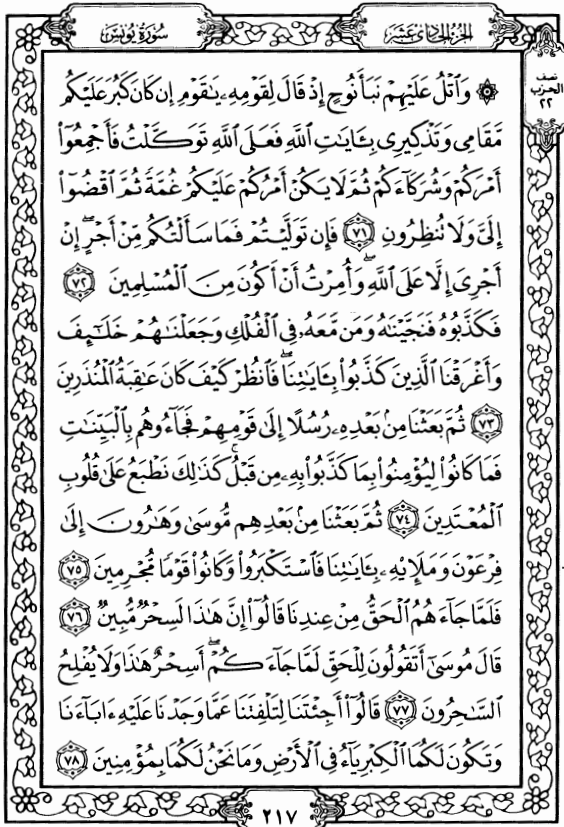 سُورَةُ يُونُسَ
الجُزءُ الحَادِىَ عَشَرَ
نصف
الحزب
٢٢
۞ وَٱتْلُ عَلَيْهِمْ نَبَأَ نُوحٍ إِذْ قَالَ لِقَوْمِهِۦ يَٰقَوْمِ إِن كَانَ كَبُرَ عَلَيْكُم
مَّقَامِى وَتَذْكِيرِى بِـَٔايَٰتِ ٱللَّهِ فَعَلَى ٱللَّهِ تَوَكَّلْتُ فَأَجْمِعُوٓا۟
أَمْرَكُمْ وَشُرَكَآءَكُمْ ثُمَّ لَا يَكُنْ أَمْرُكُمْ عَلَيْكُمْ غُمَّةً ثُمَّ ٱقْضُوٓا۟
إِلَىَّ وَلَا تُنظِرُونِ ٧١ فَإِن تَوَلَّيْتُمْ فَمَا سَأَلْتُكُم مِّنْ أَجْرٍ ۖ إِنْ
أَجْرِىَ إِلَّا عَلَى ٱللَّهِ ۖ وَأُمِرْتُ أَنْ أَكُونَ مِنَ ٱلْمُسْلِمِينَ ٧٢
فَكَذَّبُوهُ فَنَجَّيْنَٰهُ وَمَن مَّعَهُۥ فِى ٱلْفُلْكِ وَجَعَلْنَٰهُمْ خَلَٰٓئِفَ
وَأَغْرَقْنَا ٱلَّذِينَ كَذَّبُوا۟ بِـَٔايَٰتِنَا ۖ فَٱنظُرْ كَيْفَ كَانَ عَٰقِبَةُ ٱلْمُنذَرِينَ
٧٣ ثُمَّ بَعَثْنَا مِنۢ بَعْدِهِۦ رُسُلًا إِلَىٰ قَوْمِهِمْ فَجَآءُوهُم بِٱلْبَيِّنَٰتِ
فَمَا كَانُوا۟ لِيُؤْمِنُوا۟ بِمَا كَذَّبُوا۟ بِهِۦ مِن قَبْلُ ۚ كَذَٰلِكَ نَطْبَعُ عَلَىٰ قُلُوبِ
ٱلْمُعْتَدِينَ ٧٤ ثُمَّ بَعَثْنَا مِنۢ بَعْدِهِم مُّوسَىٰ وَهَٰرُونَ إِلَىٰ
فِرْعَوْنَ وَمَلَإِي۟هِۦ بِـَٔايَٰتِنَا فَٱسْتَكْبَرُوا۟ وَكَانُوا۟ قَوْمًا مُّجْرِمِينَ ٧٥
فَلَمَّا جَآءَهُمُ ٱلْحَقُّ مِنْ عِندِنَا قَالُوٓا۟ إِنَّ هَٰذَا لَسِحْرٌ مُّبِينٌ ٧٦
قَالَ مُوسَىٰٓ أَتَقُولُونَ لِلْحَقِّ لَمَّا جَآءَكُمْ ۖ أَسِحْرٌ هَٰذَا وَلَا يُفْلِحُ
ٱلسَّٰحِرُونَ ٧٧ قَالُوٓا۟ أَجِئْتَنَا لِتَلْفِتَنَا عَمَّا وَجَدْنَا عَلَيْهِ ءَابَآءَنَا
وَتَكُونَ لَكُمَا ٱلْكِبْرِيَآءُ فِى ٱلْأَرْضِ وَمَا نَحْنُ لَكُمَا بِمُؤْمِنِينَ ٧٨
٢١٧